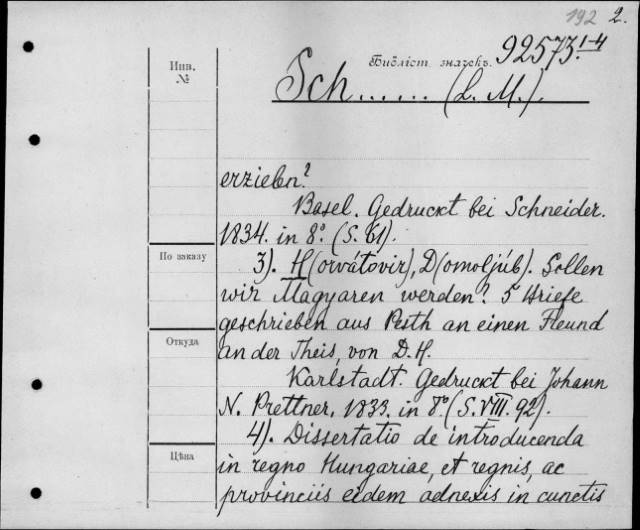 192 2.
Инв.
№
Библіот. значекъ. 92573.1-4
Sch...... (L. M.).
erzielen?
Basel. Gedruckt bei Schneider.
1834. in 8º. (S. 61).
По заказу
3). H(orvátovir), D(omoljúb). Sollen
wir Magyaren werden? 5 Briefe
geschrieben aus Pesth an einen Freund
Откуда
an der Theis, von D. H.
Karlstadt. Gedruckt bei Johann
N. Prettner, 1833. in 8º (S. VIII. 92).
4). Dissertatio de introducenda
Цѣна
in regno Hungariae, et regnis, ac
provinciis eidem adnexis in cunctis